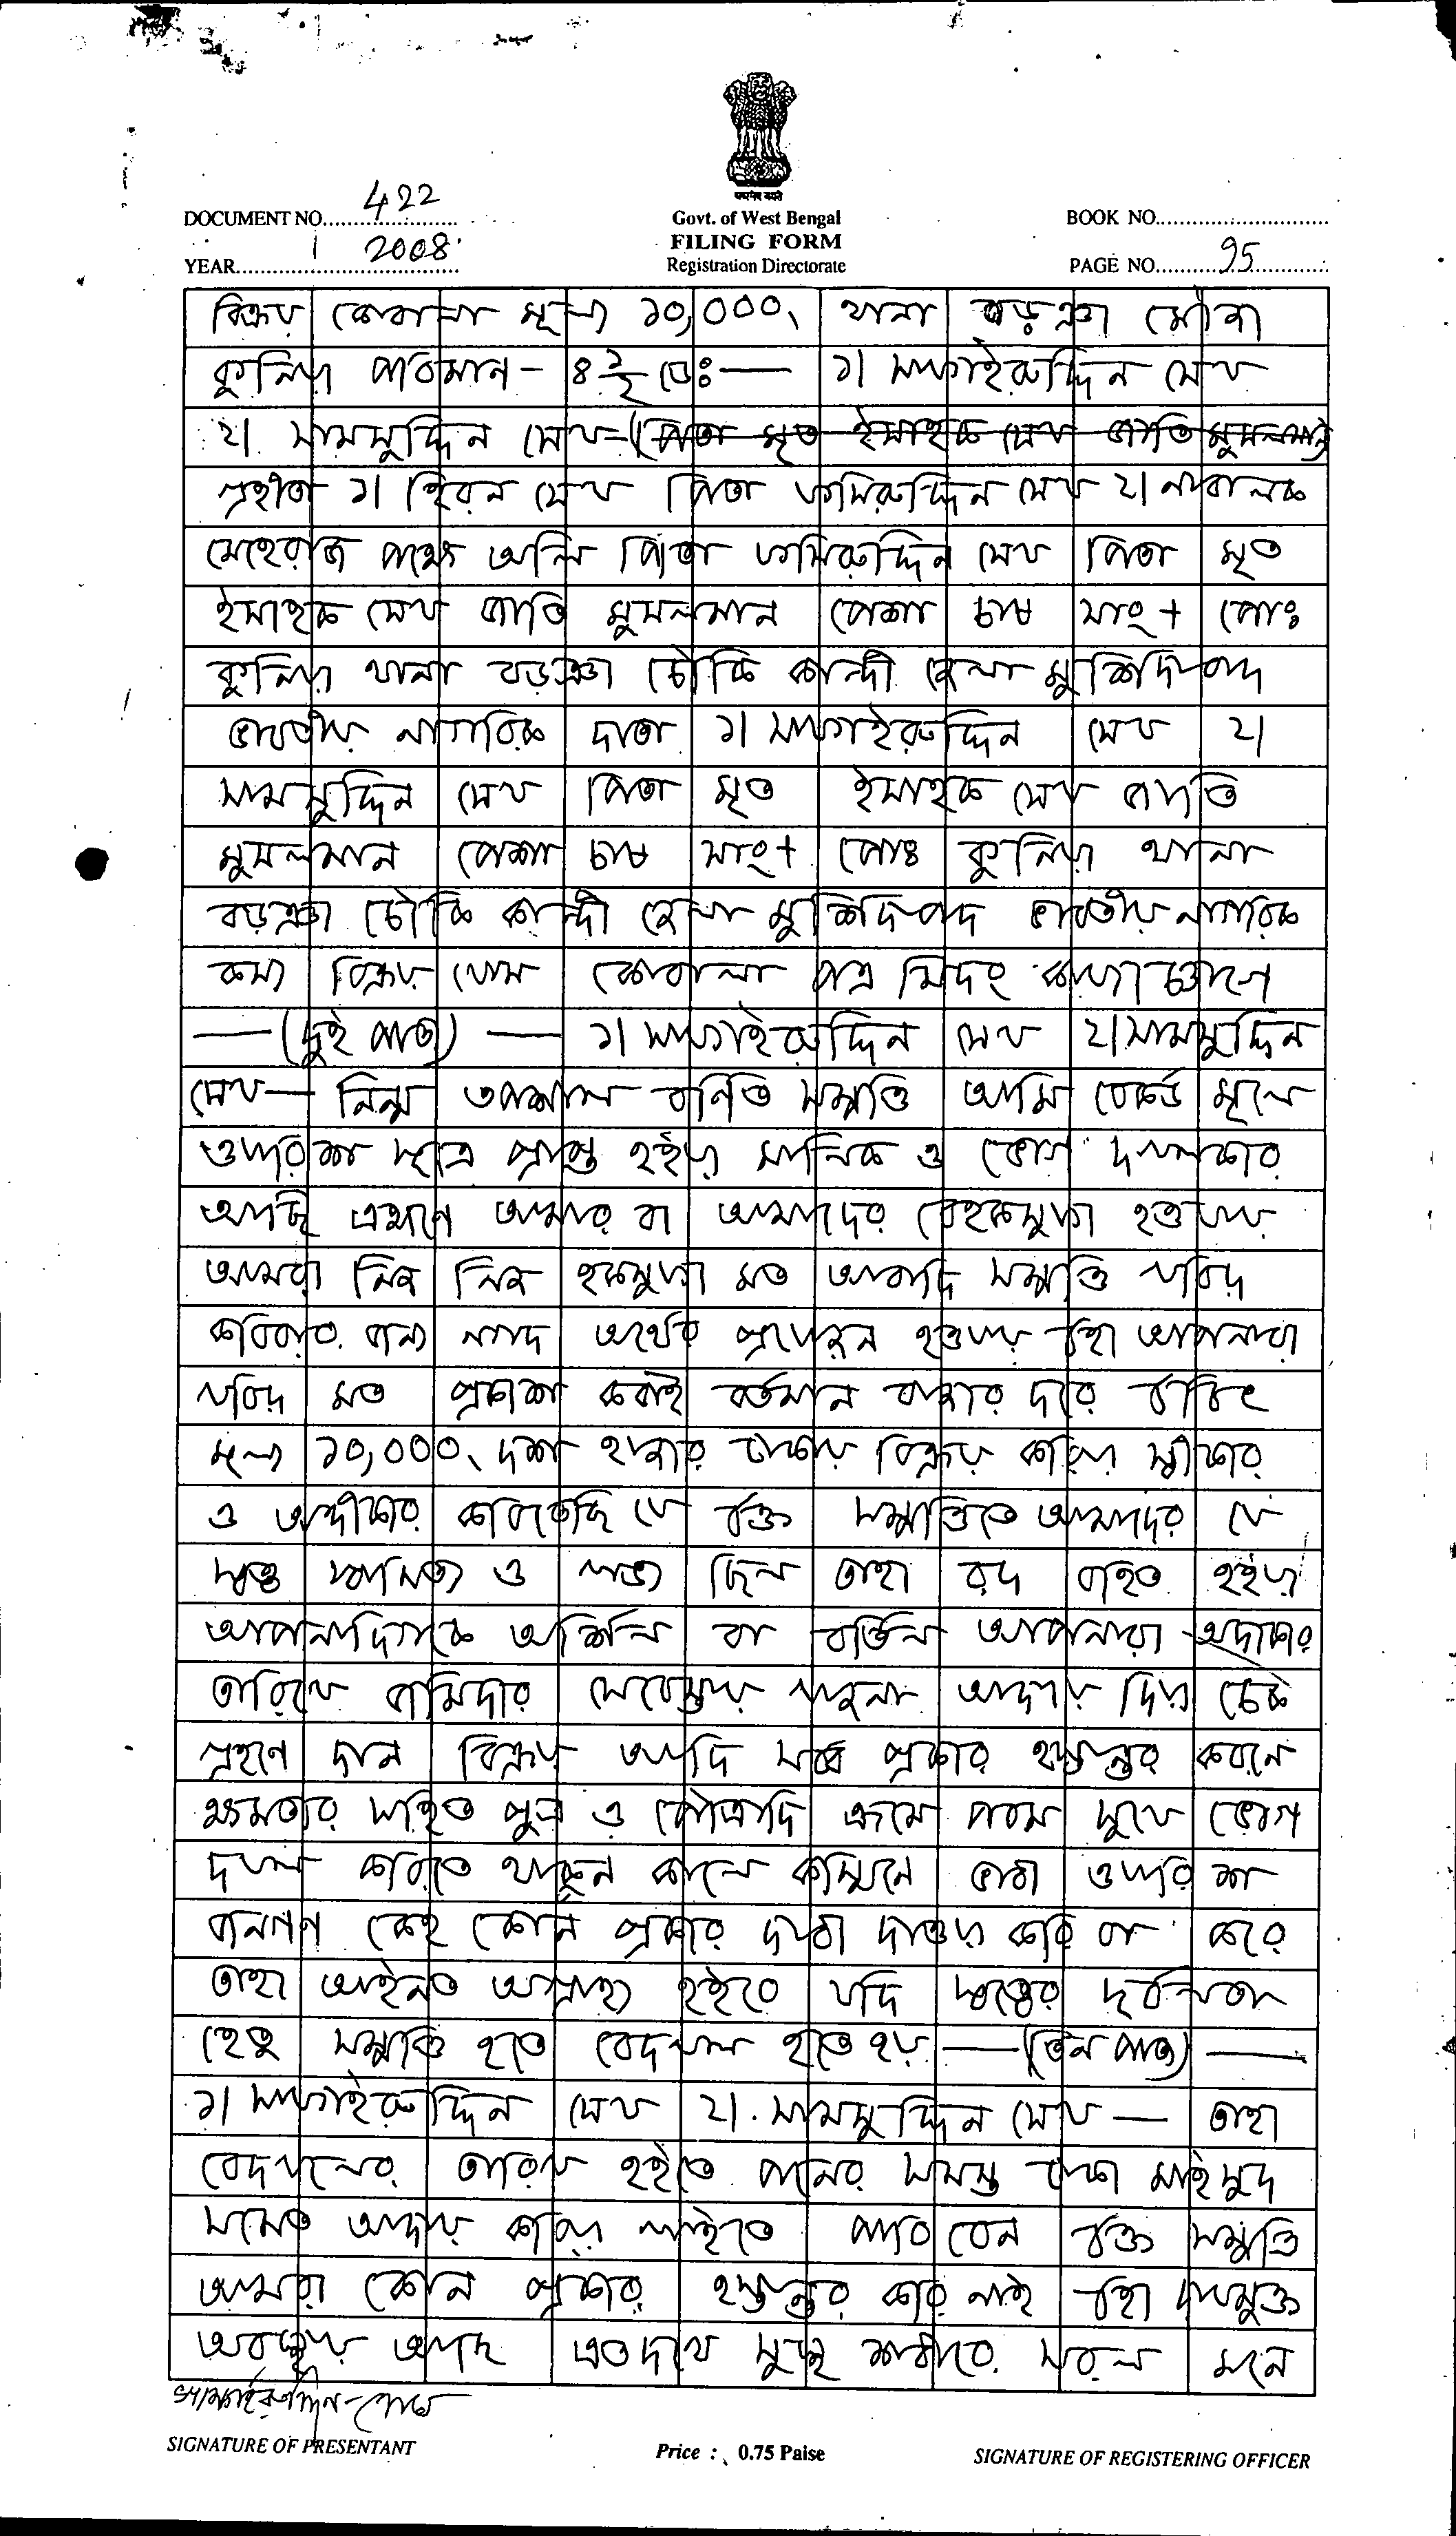 सत्यमेव जयते
DOCUMENT NO. 422
Govt. of West Bengal
BOOK NO.
FILING FORM
YEAR 2008
Registration Directorate
PAGE NO. 95
বিক্রয় কোবালা মূল্য ১০,০০০、 থানা বড়ঞা মৌজা
কুলিয়া পরিমান - ৪ ১/২ শঃ — ১।
২। সামসুদ্দিন সেখ - (পিতা মৃত ইসাহক সেখ জাতি মুসলমান)
গ্রহীতা ১। হিরন সেখ পিতা জসিরুদ্দিন সেখ ২। নাবালক
মেহেরাজ পক্ষে অলি পিতা জসিরুদ্দিন সেখ পিতা মৃত
ইসাহক সেখ জাতি মুসলমান পেশা চাষ সাং + পোঃ
কুলিয়া থানা বড়ঞা চৌকি কান্দী জেলা মুর্শিদাবাদ
ভারতীয় নাগরিক দাতা ১। সেখ ২।
সামসুদ্দিন সেখ পিতা মৃত ইসাহক সেখ জাতি
মুসলমান পেশা চাষ সাং + পোঃ কুলিয়া থানা
বড়ঞা চৌকি কান্দী জেলা মুর্শিদাবাদ ভারতীয় নাগরিক
কস্য বিক্রয় খোস কোবালা পত্র মিদং কার্য্যাঞ্চাগে
— (দুই পাতা) — ১। সেখ ২। সামসুদ্দিন
সেখ — নিম্ন তপশীল বর্নিত সম্পত্তি আমি রেকর্ড মূলে
ওয়ারিশ সূত্রে প্রাপ্ত হইয়া মালিক ও ভোগ দখলকার
আছি এক্ষণে আমার বা আমাদের হওয়ায়
আমরা নিজ নিজ মত আবাদি সম্পত্তি খরিদ
করিবার জন্য নগদ অর্থের প্রয়োজন হওয়ায় উহা আপনারা
খরিদ মত প্রকাশ করাই বর্তমান বাজার দরে উচিৎ
মূল্য ১০,০০০、 দশ হাজার টাকায় বিক্রয় করিয়া স্বীকার
ও অঙ্গীকার করিতেছি যে উক্ত সম্পত্তিতে আমাদের যে
স্বত্ত্ব স্বামিত্ব ও লভ্য ছিল তাহা রদ রহিত হইয়া
আপনাদিগকে অর্শিল বা বর্তিল আপনারা অদ্যকার
তারিখে জমিদার সেরেস্তায় খাজনা আদায় দিয়া চেক
গ্রহণে দান বিক্রয় আদি সর্ব্ব প্রকার হস্তান্তর করনে
ক্ষমতার সহিত পুত্র ও পৌত্রাদি ক্রমে পরম সুখে ভোগ
দখল করিতে থাকুন কালে কস্মিনে ওয়ারিশ
কেহ কোন প্রকার দাবী দাওয়া করি বা করে
তাহা আইনত অগ্রাহ্য হইবে যদি স্বত্ত্বের দূর্বলতা
হেতু সম্পত্তি হতে বেদখল হতে হয় — (তিন পাতা) —
১। সেখ ২। সামসুদ্দিন সেখ — তাহা
বেদখলের তারিখ হইতে পনের সমস্ত টাকা মাইসুদ
সমেত আদায় করিয়া লইতে পারিবেন উক্ত সম্পত্তি
আমরা কোন প্রকার হস্তান্তর করি নাই উহা দায়মুক্ত
অবস্থায় আছে এতদার্থে সুস্থ শরীরে সরল মনে
SIGNATURE OF PRESENTANT
Price : 0.75 Paise
SIGNATURE OF REGISTERING OFFICER